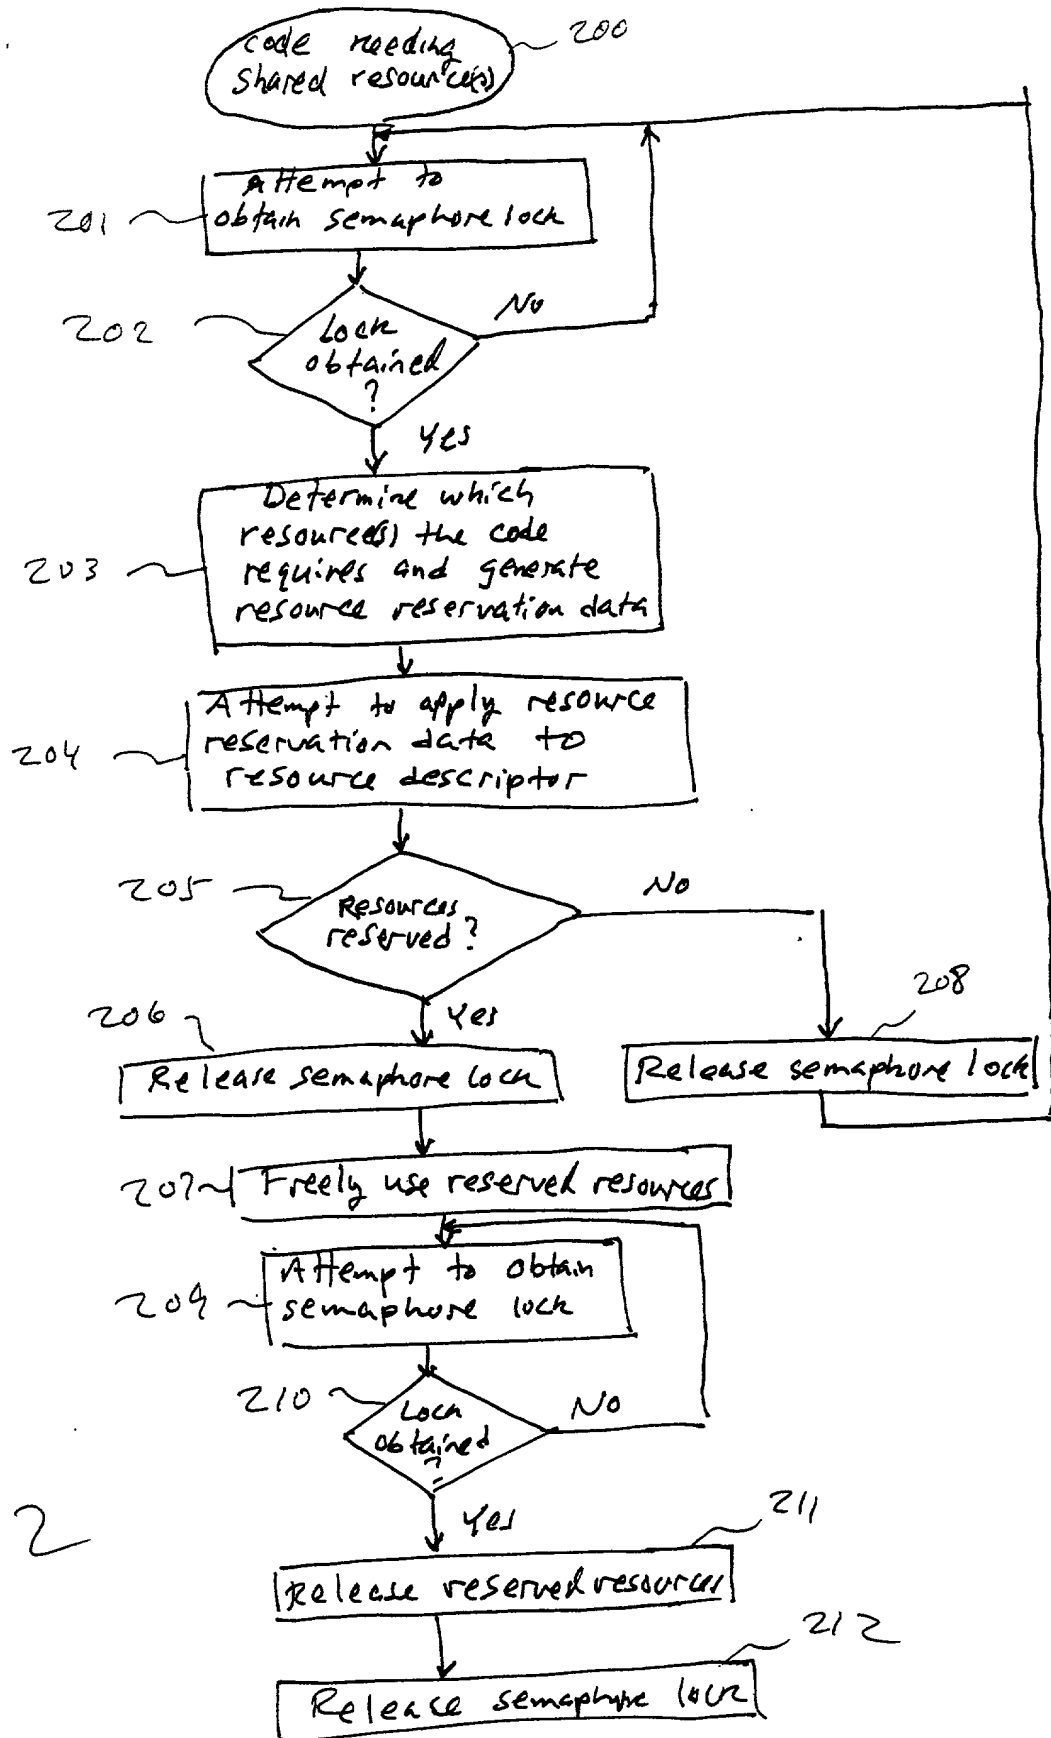 code needing
shared resource(s)
200
Attempt to
obtain semaphore lock
201
202
Lock
obtained
?
No
Yes
203
Determine which
resource(s) the code
requires and generate
resource reservation data
204
Attempt to apply resource
reservation data to
resource descriptor
205
Resources
reserved?
No
Yes
206
208
Release semaphore lock
Release semaphore lock
207
Freely use reserved resources
209
Attempt to obtain
semaphore lock
210
Lock
obtained
?
No
Yes
2
211
Release reserved resources
212
Release semaphore lock